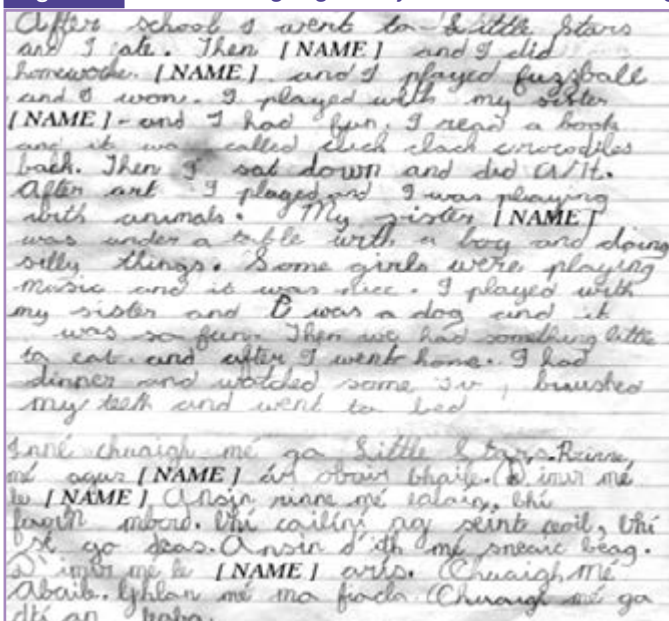 After school I went to Little Stars
and I ate. Then [NAME] and I did
homewoke. [NAME] and I played fuzzball
and I won. I played with my sister
[NAME] - and I had fun. I read a book
and it was called click clack crocodiles
back. Then I sat down and did a/rt.
After art I played and I was playing
with animals. My sister [NAME]
was under a table with a boy and doing
silly things. Some girls were playing
music and it was nice. I played with
my sister and I was a dog and it
was so fun. Then we had something little
to eat. and after I went home. I had
dinner and watched some Tv, brushed
my teeth and went to bed
Inné chuaigh mé ga Little Stars. Rinne
mé agus [NAME] ár obair bhaile. D imir mé
le [NAME] Ansin rinne mé ealaín, bhí
mbord. bhí cailíní ag seint ceoil, bhí
sé go deas. Ansin d'ith mé sneaic beag.
D'imir mé le [NAME] arís. Chuaigh Mé
Abaile. Ghlan mé ma fiacla. Chuaigh mé ga
dtí an leaba.